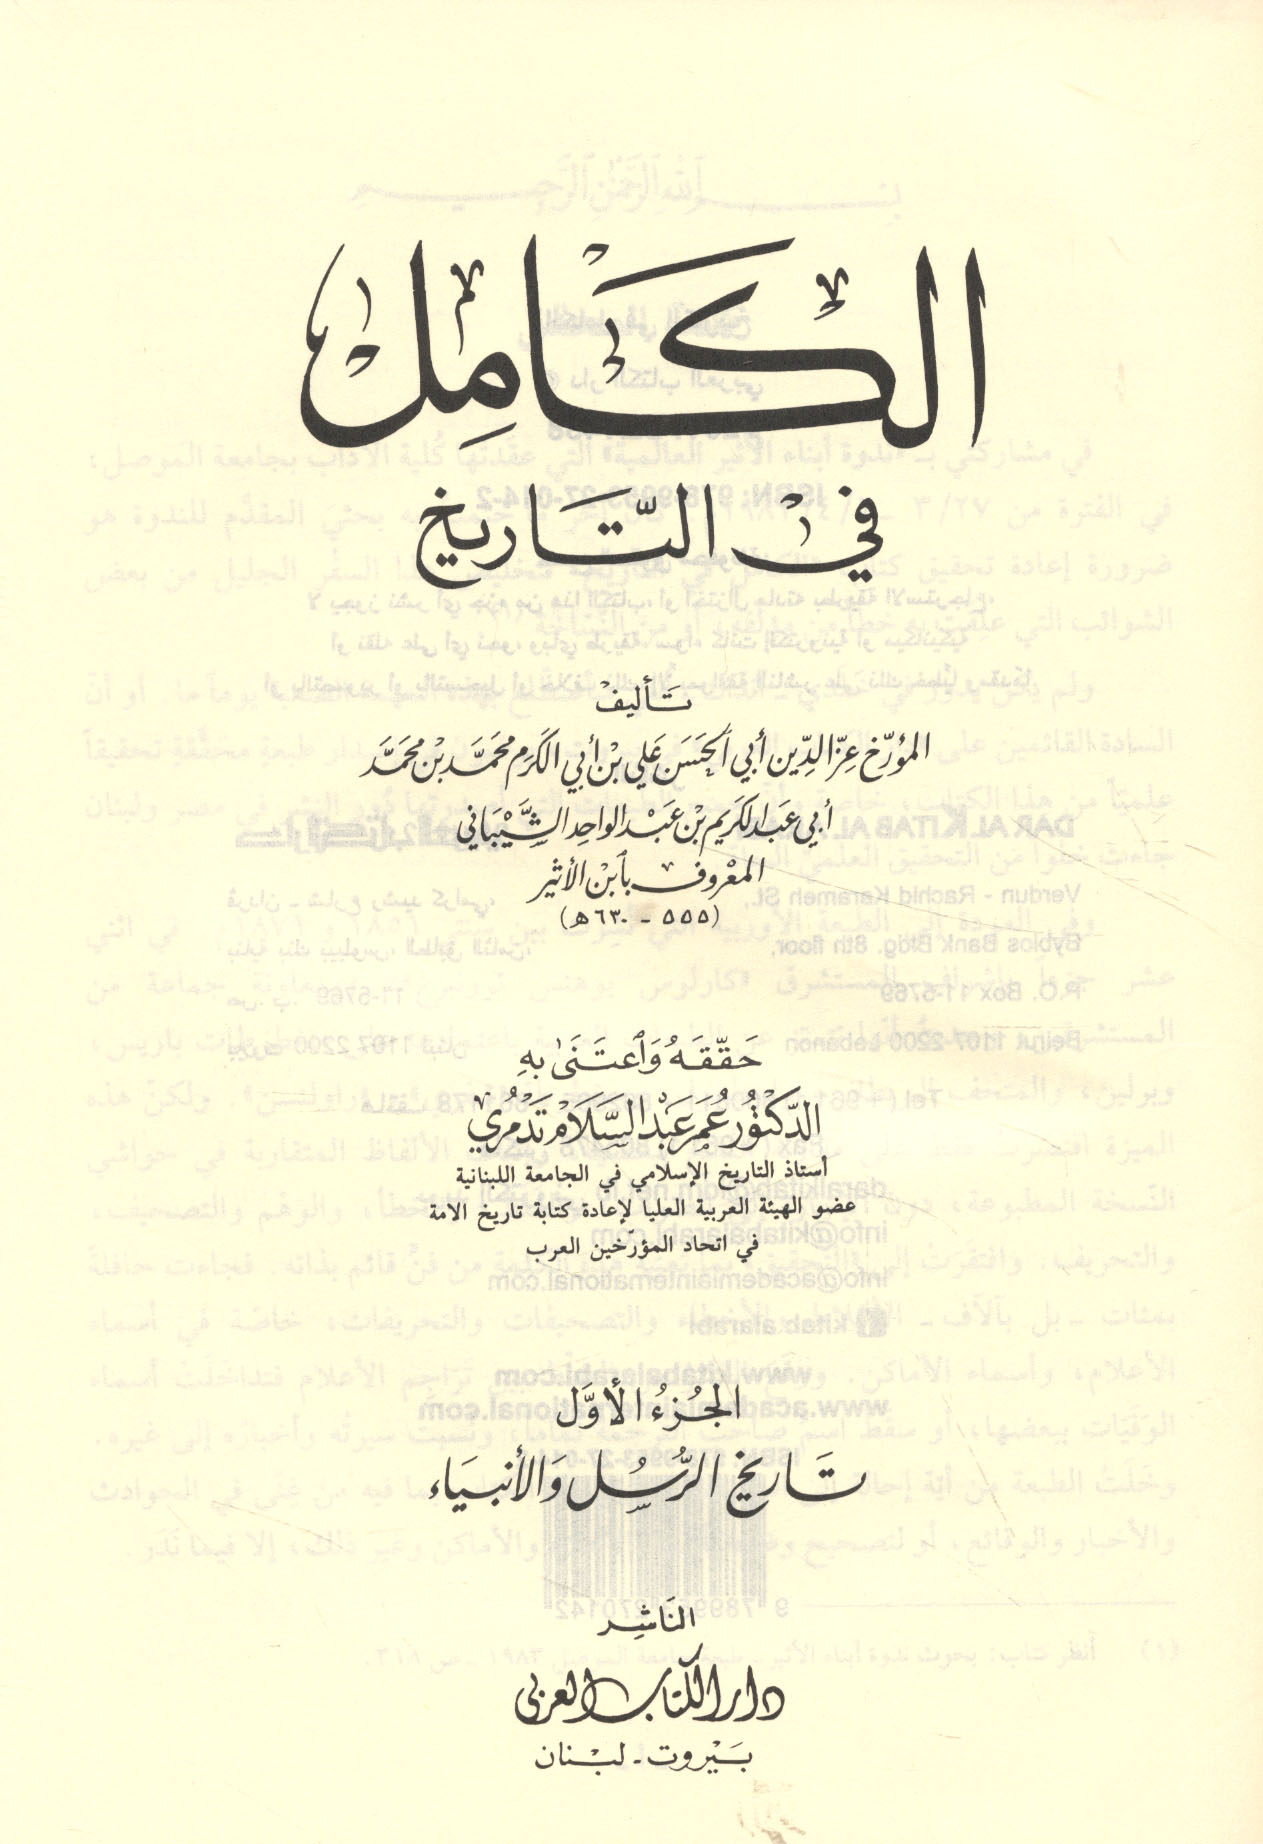 الكَامِل
في التَّاريخ
تَأليف
المؤرّخ عِزّ الدِّين أبي الحَسَن عَلي بْن أبي الكَرم محمَّد بْن محمَّد
أبي عَبد الكَريم بْن عَبْد الواحِد الشَّيْبَاني
المعْروف بابن الأثير
(٥٥٥ - ٦٣٠هـ)
حَقّقَهُ وَاعتَنَى بهِ
الدّكتُور عُمَر عَبْد السَّلَام تَدْمُري
أستاذ التاريخ الإسلامي في الجامعة اللبنانية
عضو الهيئة العربية العليا لإعادة كتابة تاريخ الامة
في اتحاد المؤرّخين العرب
الجُزءُ الأوَّل
تَاريخ الرُّسُل وَالأنبيَاء
النَاشِر
دار الكتاب العربي
بَيْروت - لبْنان